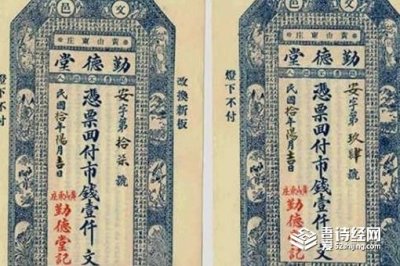 文邑
黄山甯庄
勤德堂
改換新板
安字第拾柒號
憑票囬付市錢壹仟文
民國拾年陽月吉日
勤德堂記
燈下不付
文邑
黄山甯庄
勤德堂
安字第玖肆號
憑票囬付市錢壹仟文
民國拾年陽月吉日
勤德堂記
燈下不付
诗经网
52shijing.com